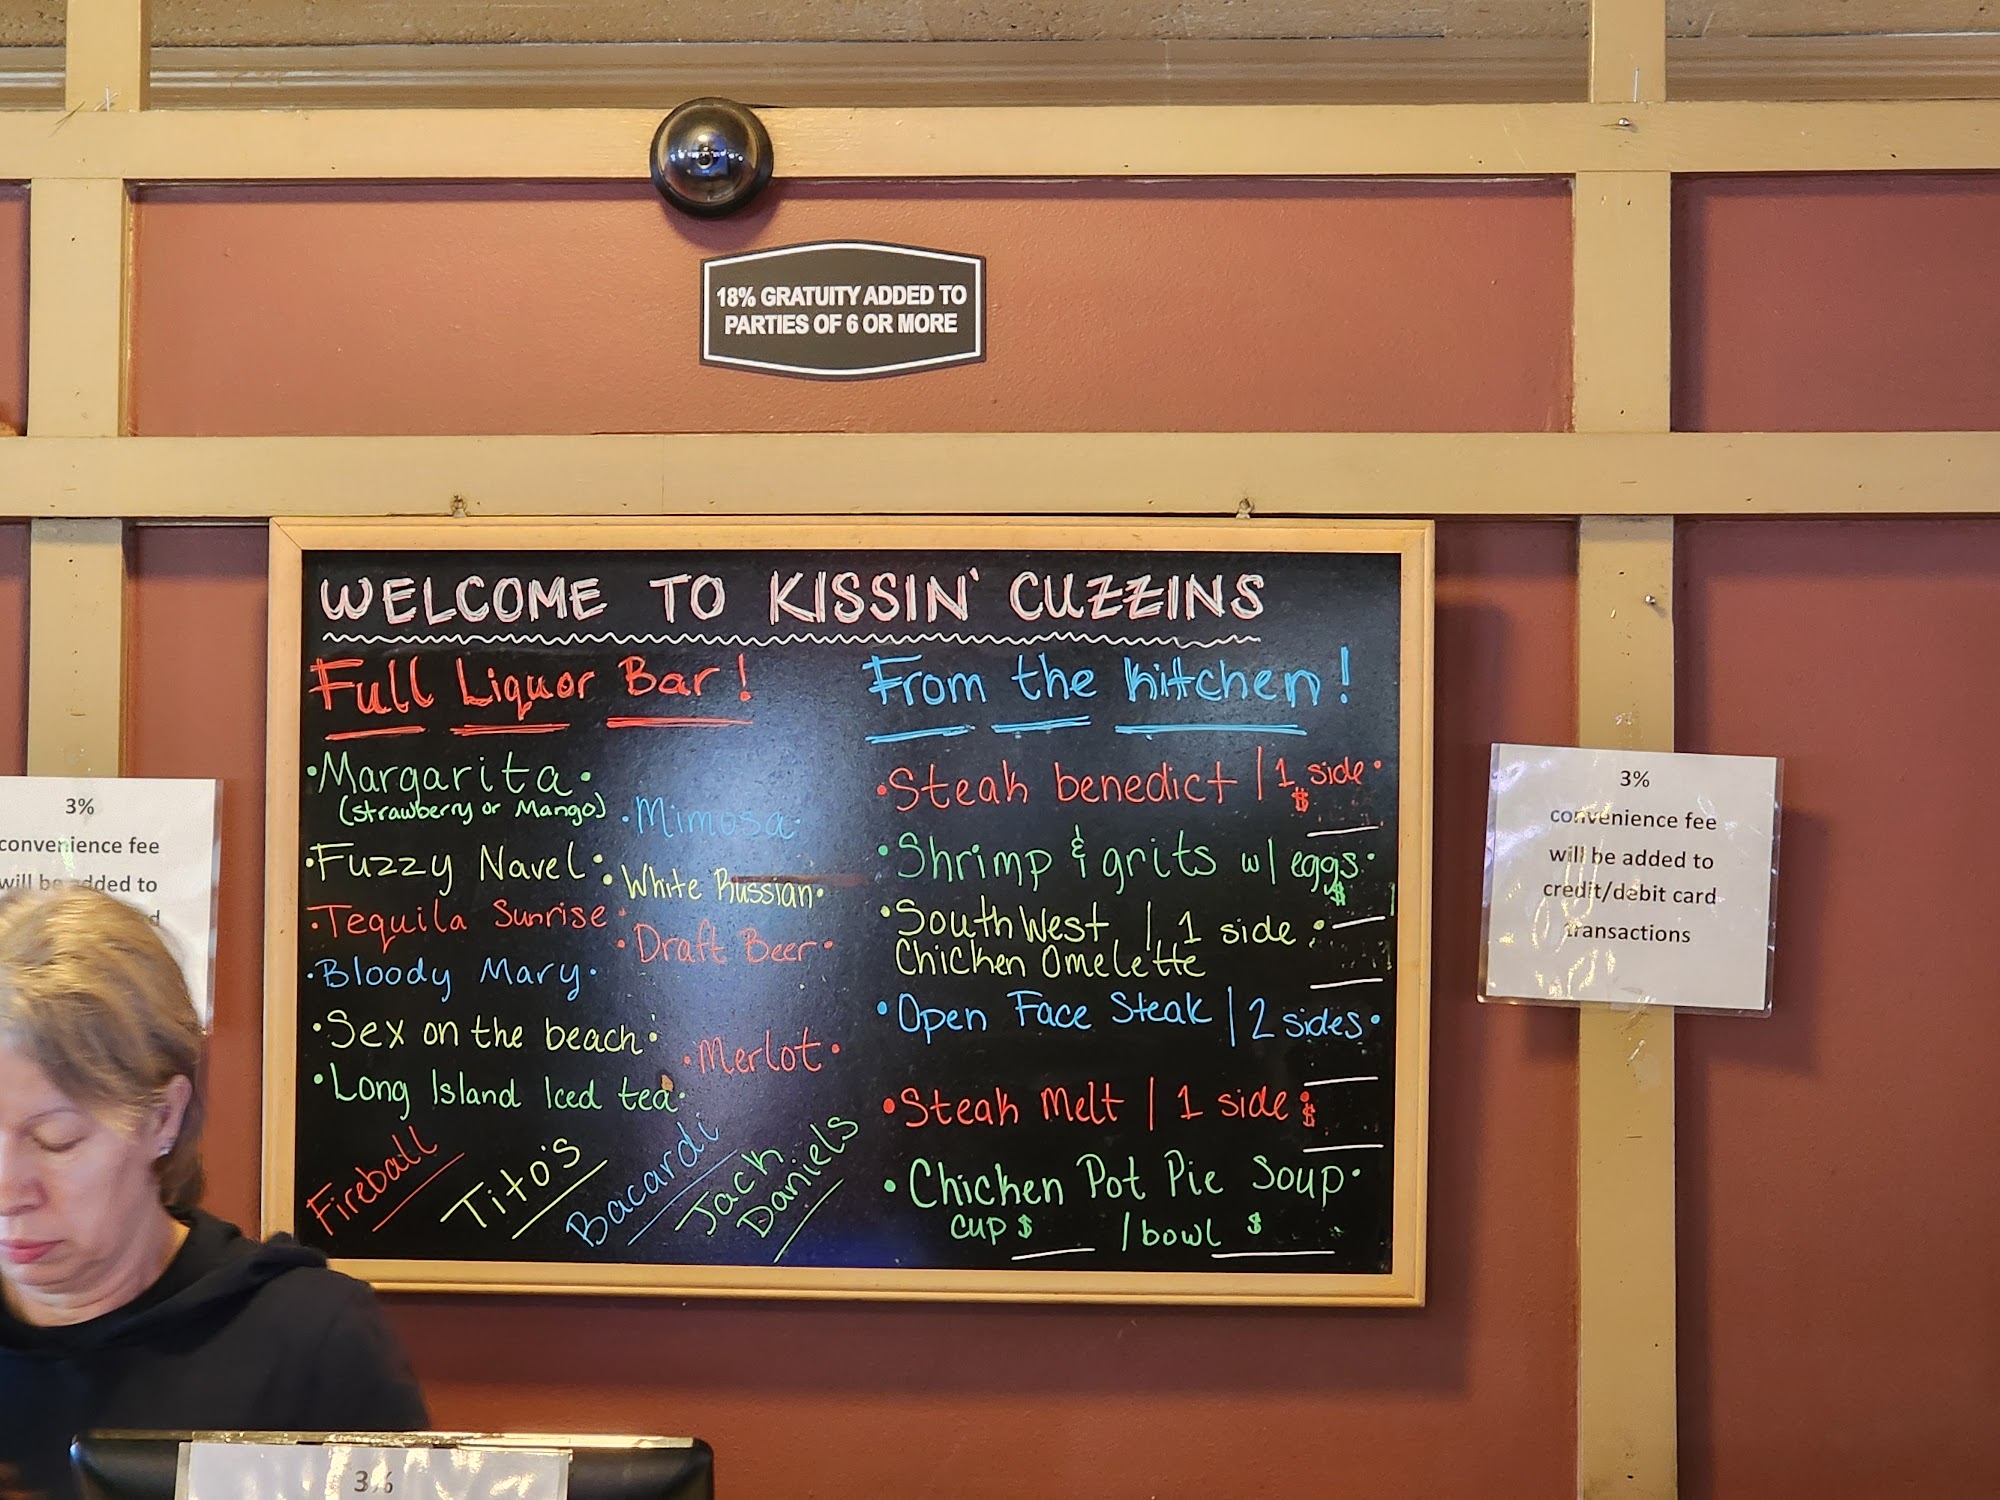 18% GRATUITY ADDED TO
PARTIES OF 6 OR MORE
WELCOME TO KISSIN' CUZZINS
Full Liquor Bar!
•Margarita•
(strawberry or Mango)
•Mimosa•
•Fuzzy Navel•
•White Russian•
•Tequila Sunrise•
•Draft Beer•
•Bloody Mary•
•Sex on the beach•
•Merlot•
•Long Island Iced tea•
Fireball
Tito's
Bacardi
Jack
Daniels
From the Kitchen!
•Steak benedict | 1 side•
$
•Shrimp & grits w/ eggs•
$
•SouthWest | 1 side•
Chicken Omelette
•Open Face Steak | 2 sides•
•Steak Melt | 1 side•
$
•Chicken Pot Pie Soup•
cup $ / bowl $
3%
convenience fee
will be added to
credit/debit card
transactions
3%
convenience fee
will be added to
3%